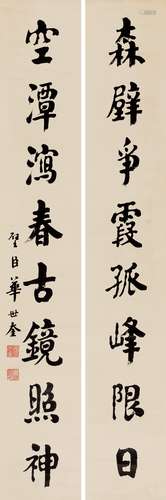 森壁爭霞孤峰限日
空潭瀉春古鏡照神
璧臣華世奎